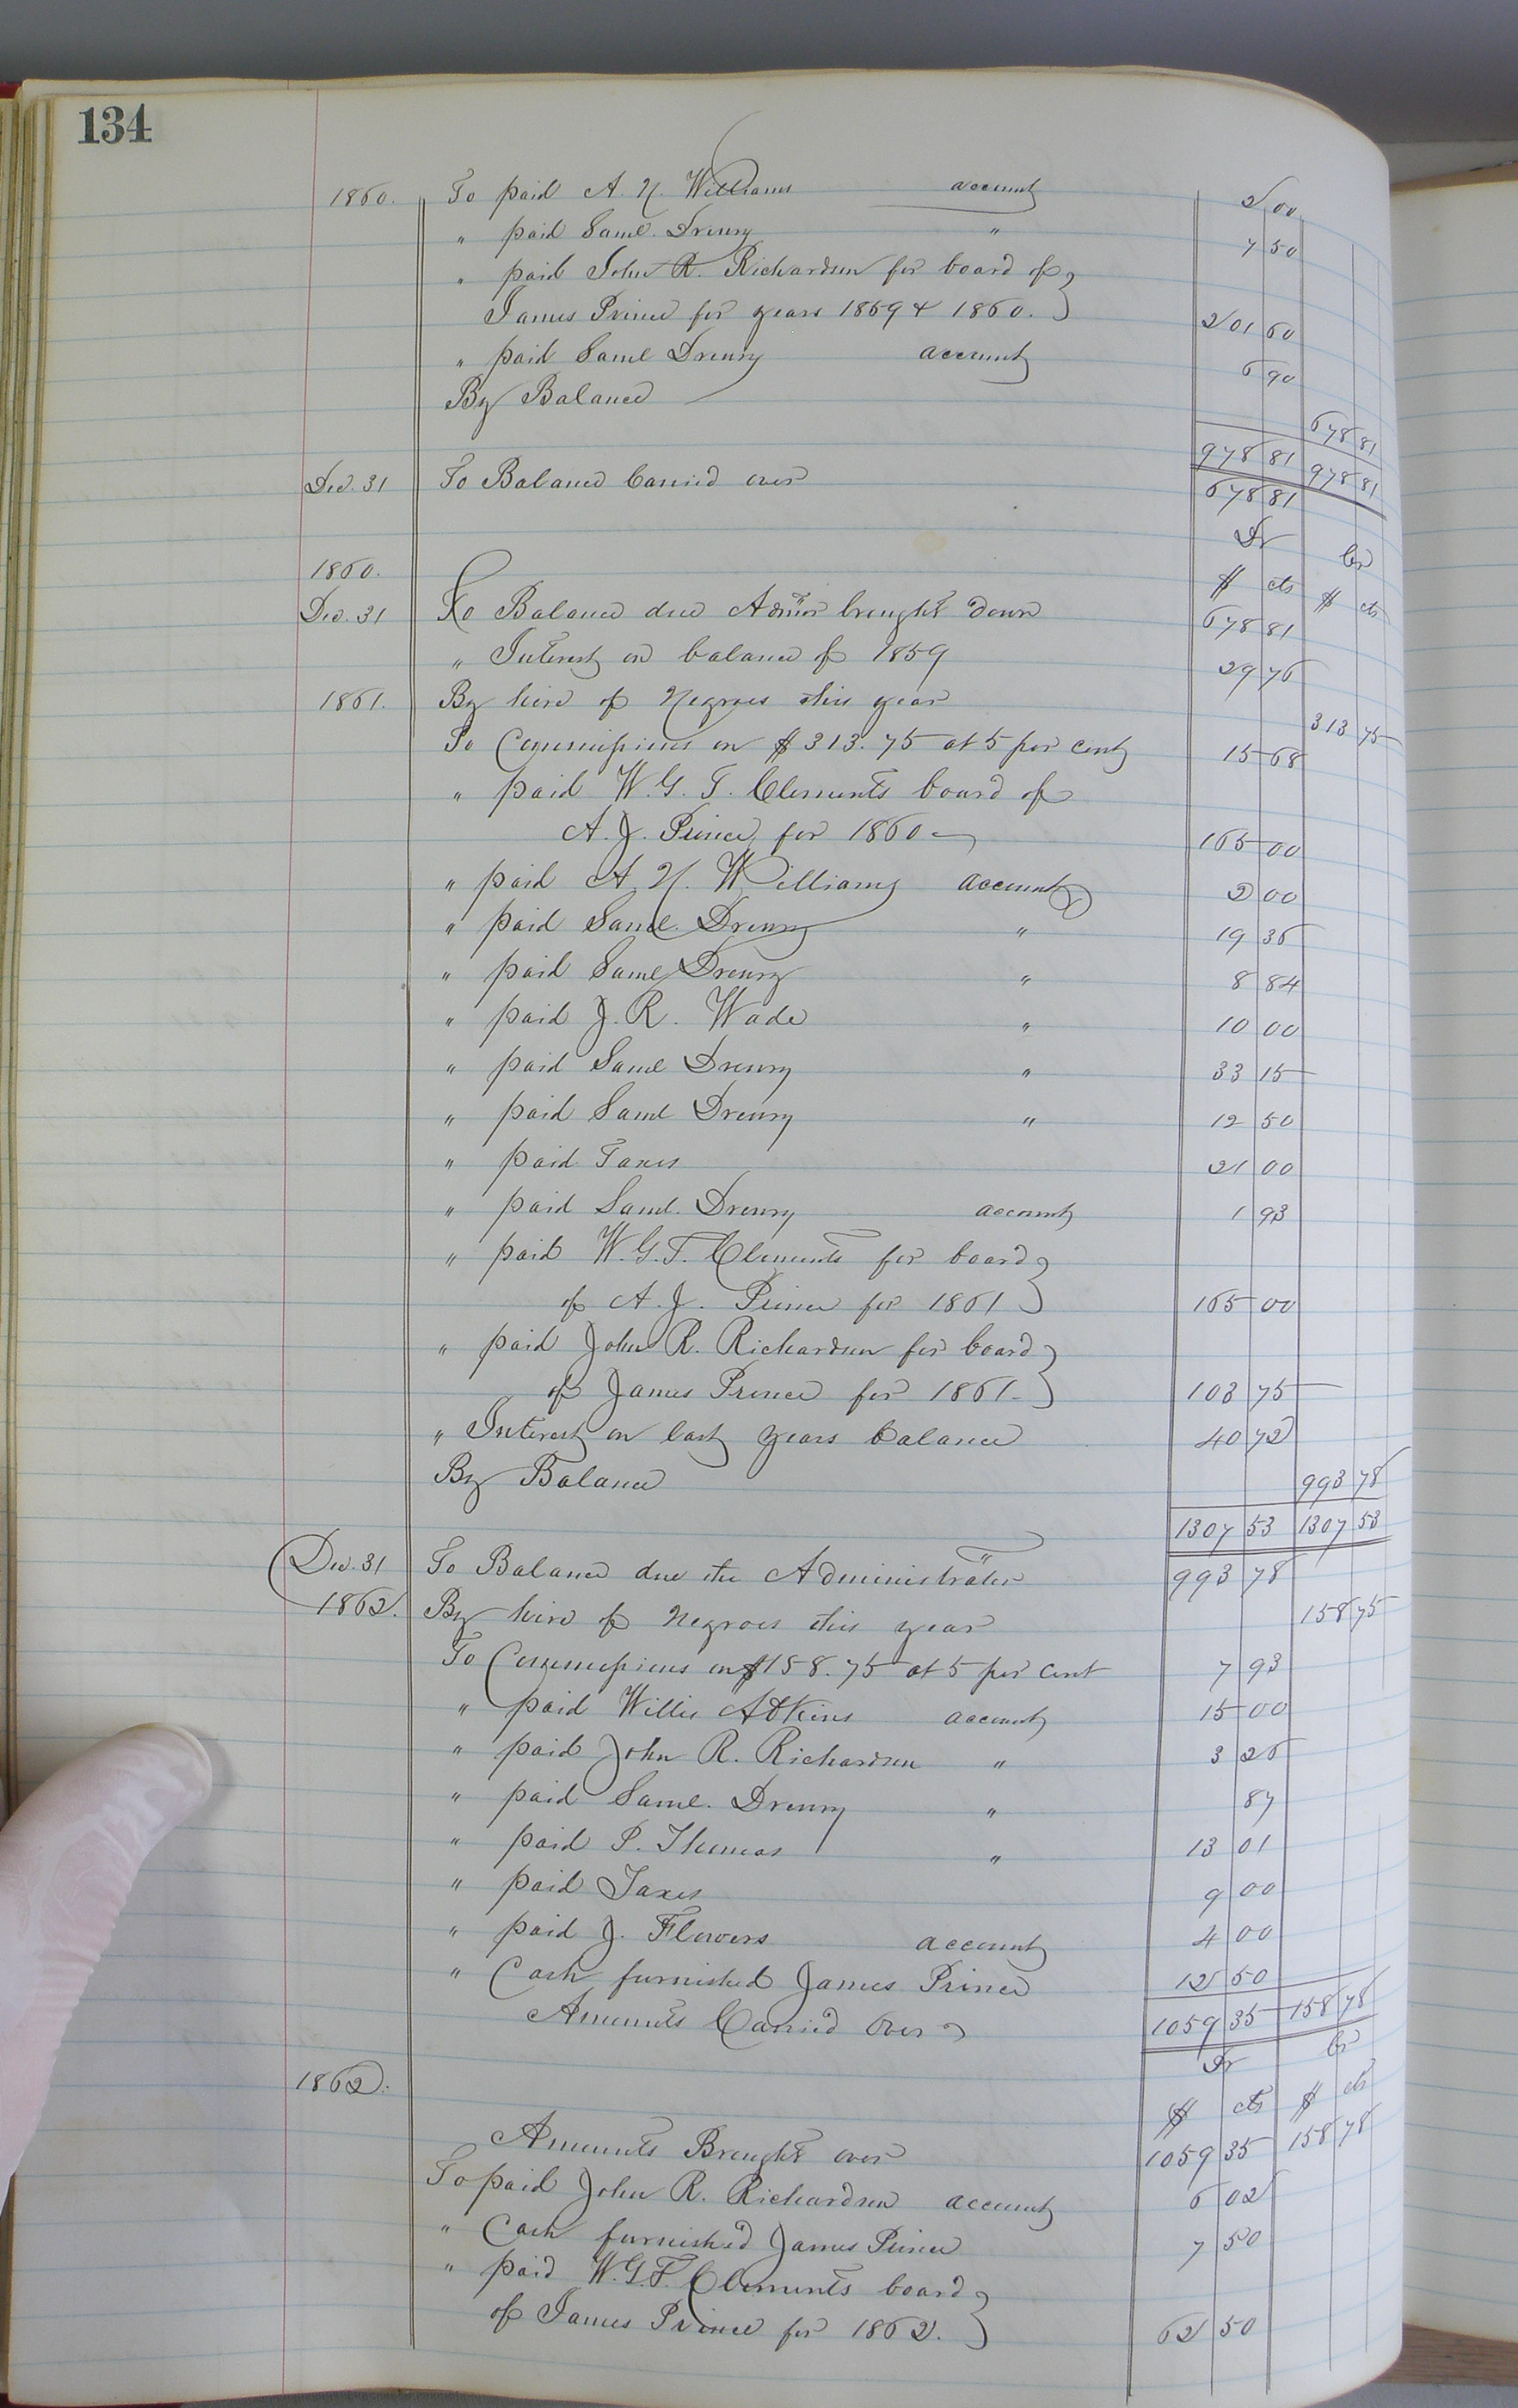 134
1860. To paid A. N. Williams account 2 00
" paid Saml. Drewry " 7 50
" paid John R. Richardson for board of
James Prince for years 1859 & 1860. 201 60
" paid Saml Drewry account 6 90
By Balance 678 81
978 81 978 81
Dec. 31 To Balance Carried over 678 81
Dr Cr
1860. $ cts $ cts
Dec. 31 To Balance due Admor brought down 678 81
" Interest on balance of 1859 29 76
1861. By hire of Negroes this year 313 75
To Commissions on $313.75 at 5 per cent 15 68
" paid W. G. T. Clements board of
A. J. Prince for 1860 165 00
" paid A. N. Williams account 2 00
" paid Saml. Drewry " 19 36
" paid Saml Drewry " 8 84
" paid J. R. Wade " 10 00
" paid Saml Drewry " 33 15
" paid Saml Drewry " 12 50
" paid Taxes 21 00
" paid Saml. Drewry account 1 93
" paid W. G. T. Clements for board
of A. J. Prince for 1861 165 00
" paid John R. Richardson for board
of James Prince for 1861. 103 75
" Interest on last years balance 40 72
By Balance 993 78
1307 53 1307 53
Dec. 31 To Balance due the Administrator 993 78
1862. By hire of Negroes this year 158 75
To Commissions on $158.75 at 5 per cent 7 93
" paid Willis Atkins account 15 00
" paid John R. Richardson " 3 26
" paid Saml. Drewry " 87
" paid P. Thomas " 13 01
" paid Taxes 9 00
" paid J. Flowers account 4 00
" Cash furnished James Prince 12 50
Amounts Carried Over 1059 35 158 78
Dr Cr
1862. $ cts $ cts
Amounts Brought over 1059 35 158 78
To paid John R. Richardson account 6 02
" Cash furnished James Prince 7 50
" paid W. G. T. Clements board
of James Prince for 1862. 62 50